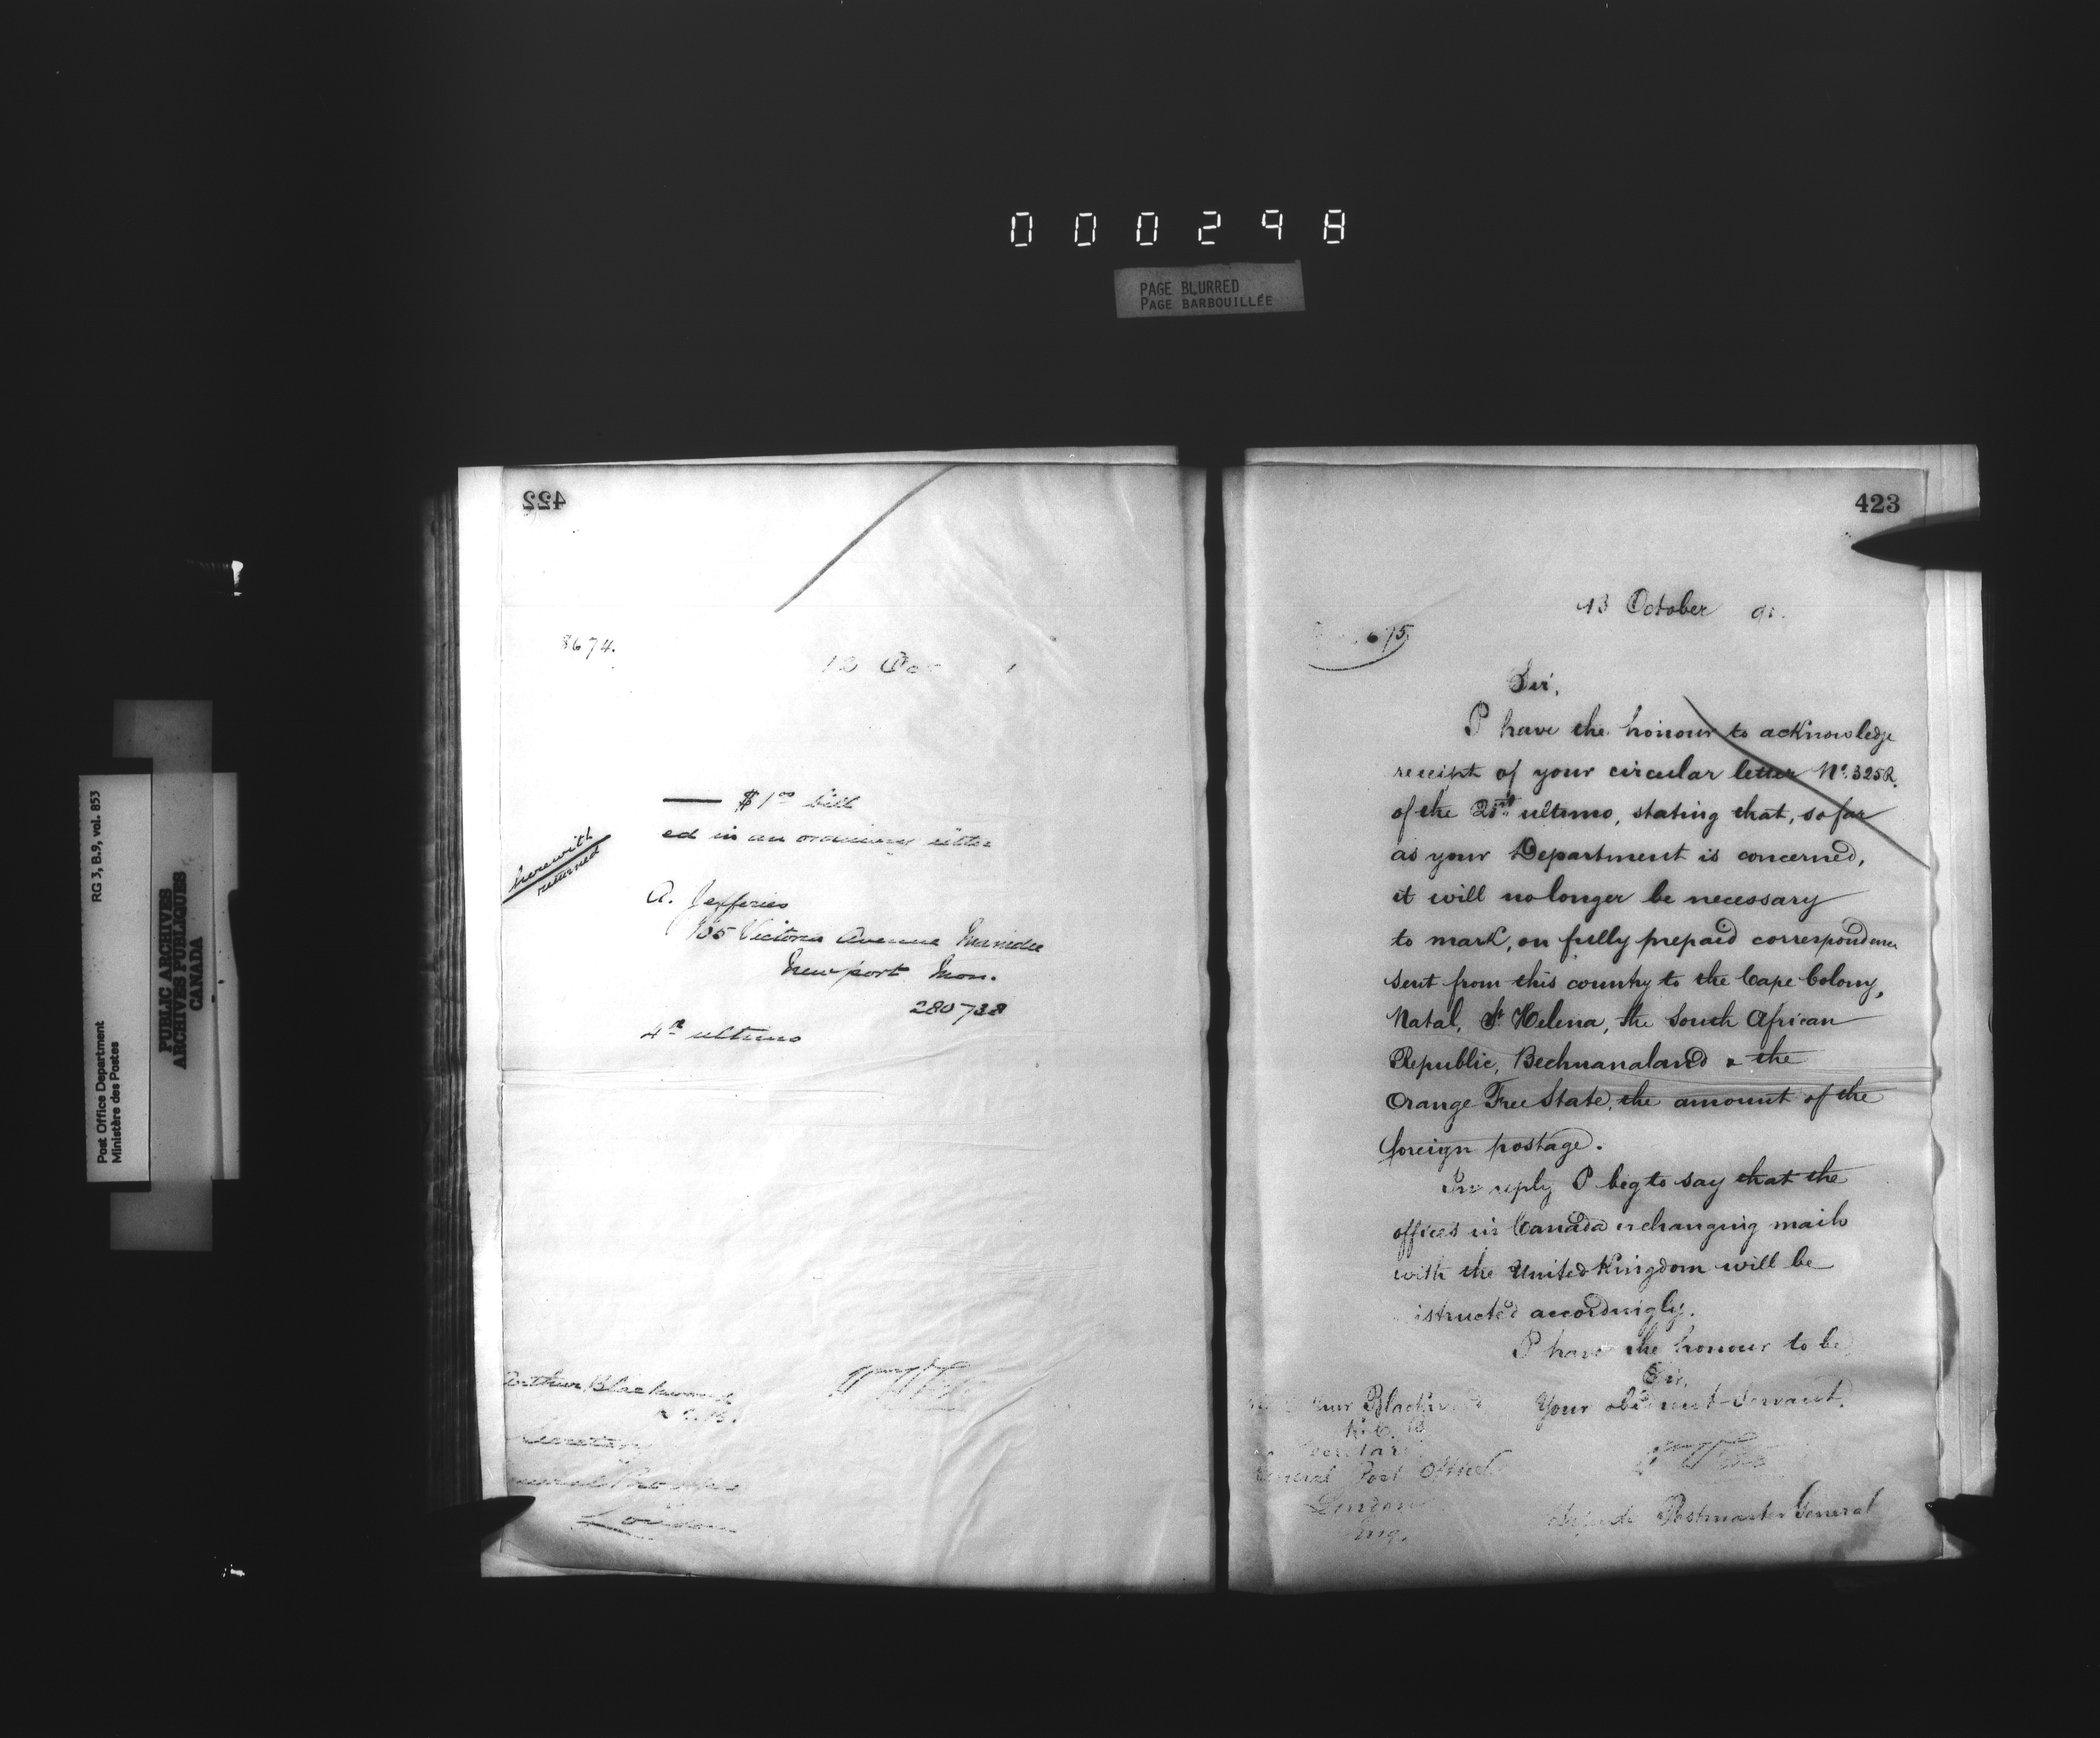 000298
PAGE BLURRED
PAGE BARBOUILLÉE
Post Office Department
Ministère des Postes
RG 3, B.9, vol. 853
PUBLIC ARCHIVES
ARCHIVES PUBLIQUES
CANADA
422
8674.
13
$1.00 bill
ed in an ordinary letter
herewith
returned
A. Jefferies
105 Victoria Avenue
Newport Mon.
280738
4th ultimo
Arthur Blackwood
K.C.B.
Secretary
London
423
13 October 91.
675
Sir,
I have the honour to acknowledge
receipt of your circular letter No. 325R.
of the ultimo, stating that, so far
as your Department is concerned,
it will no longer be necessary
to mark, on fully prepaid correspondence
sent from this country to the Cape Colony,
Natal, St Helena, the South African
Republic, Bechuanaland & the
Orange Free State, the amount of the
foreign postage.
In reply I beg to say that the
offices in Canada exchanging mails
with the United Kingdom will be
istructed accordingly.
I have the honour to be
Sir,
Your obedient Servant,
Blackwood
K.C.B.
Secretary
General Post Office
London
Eng.
Deputy Postmaster General